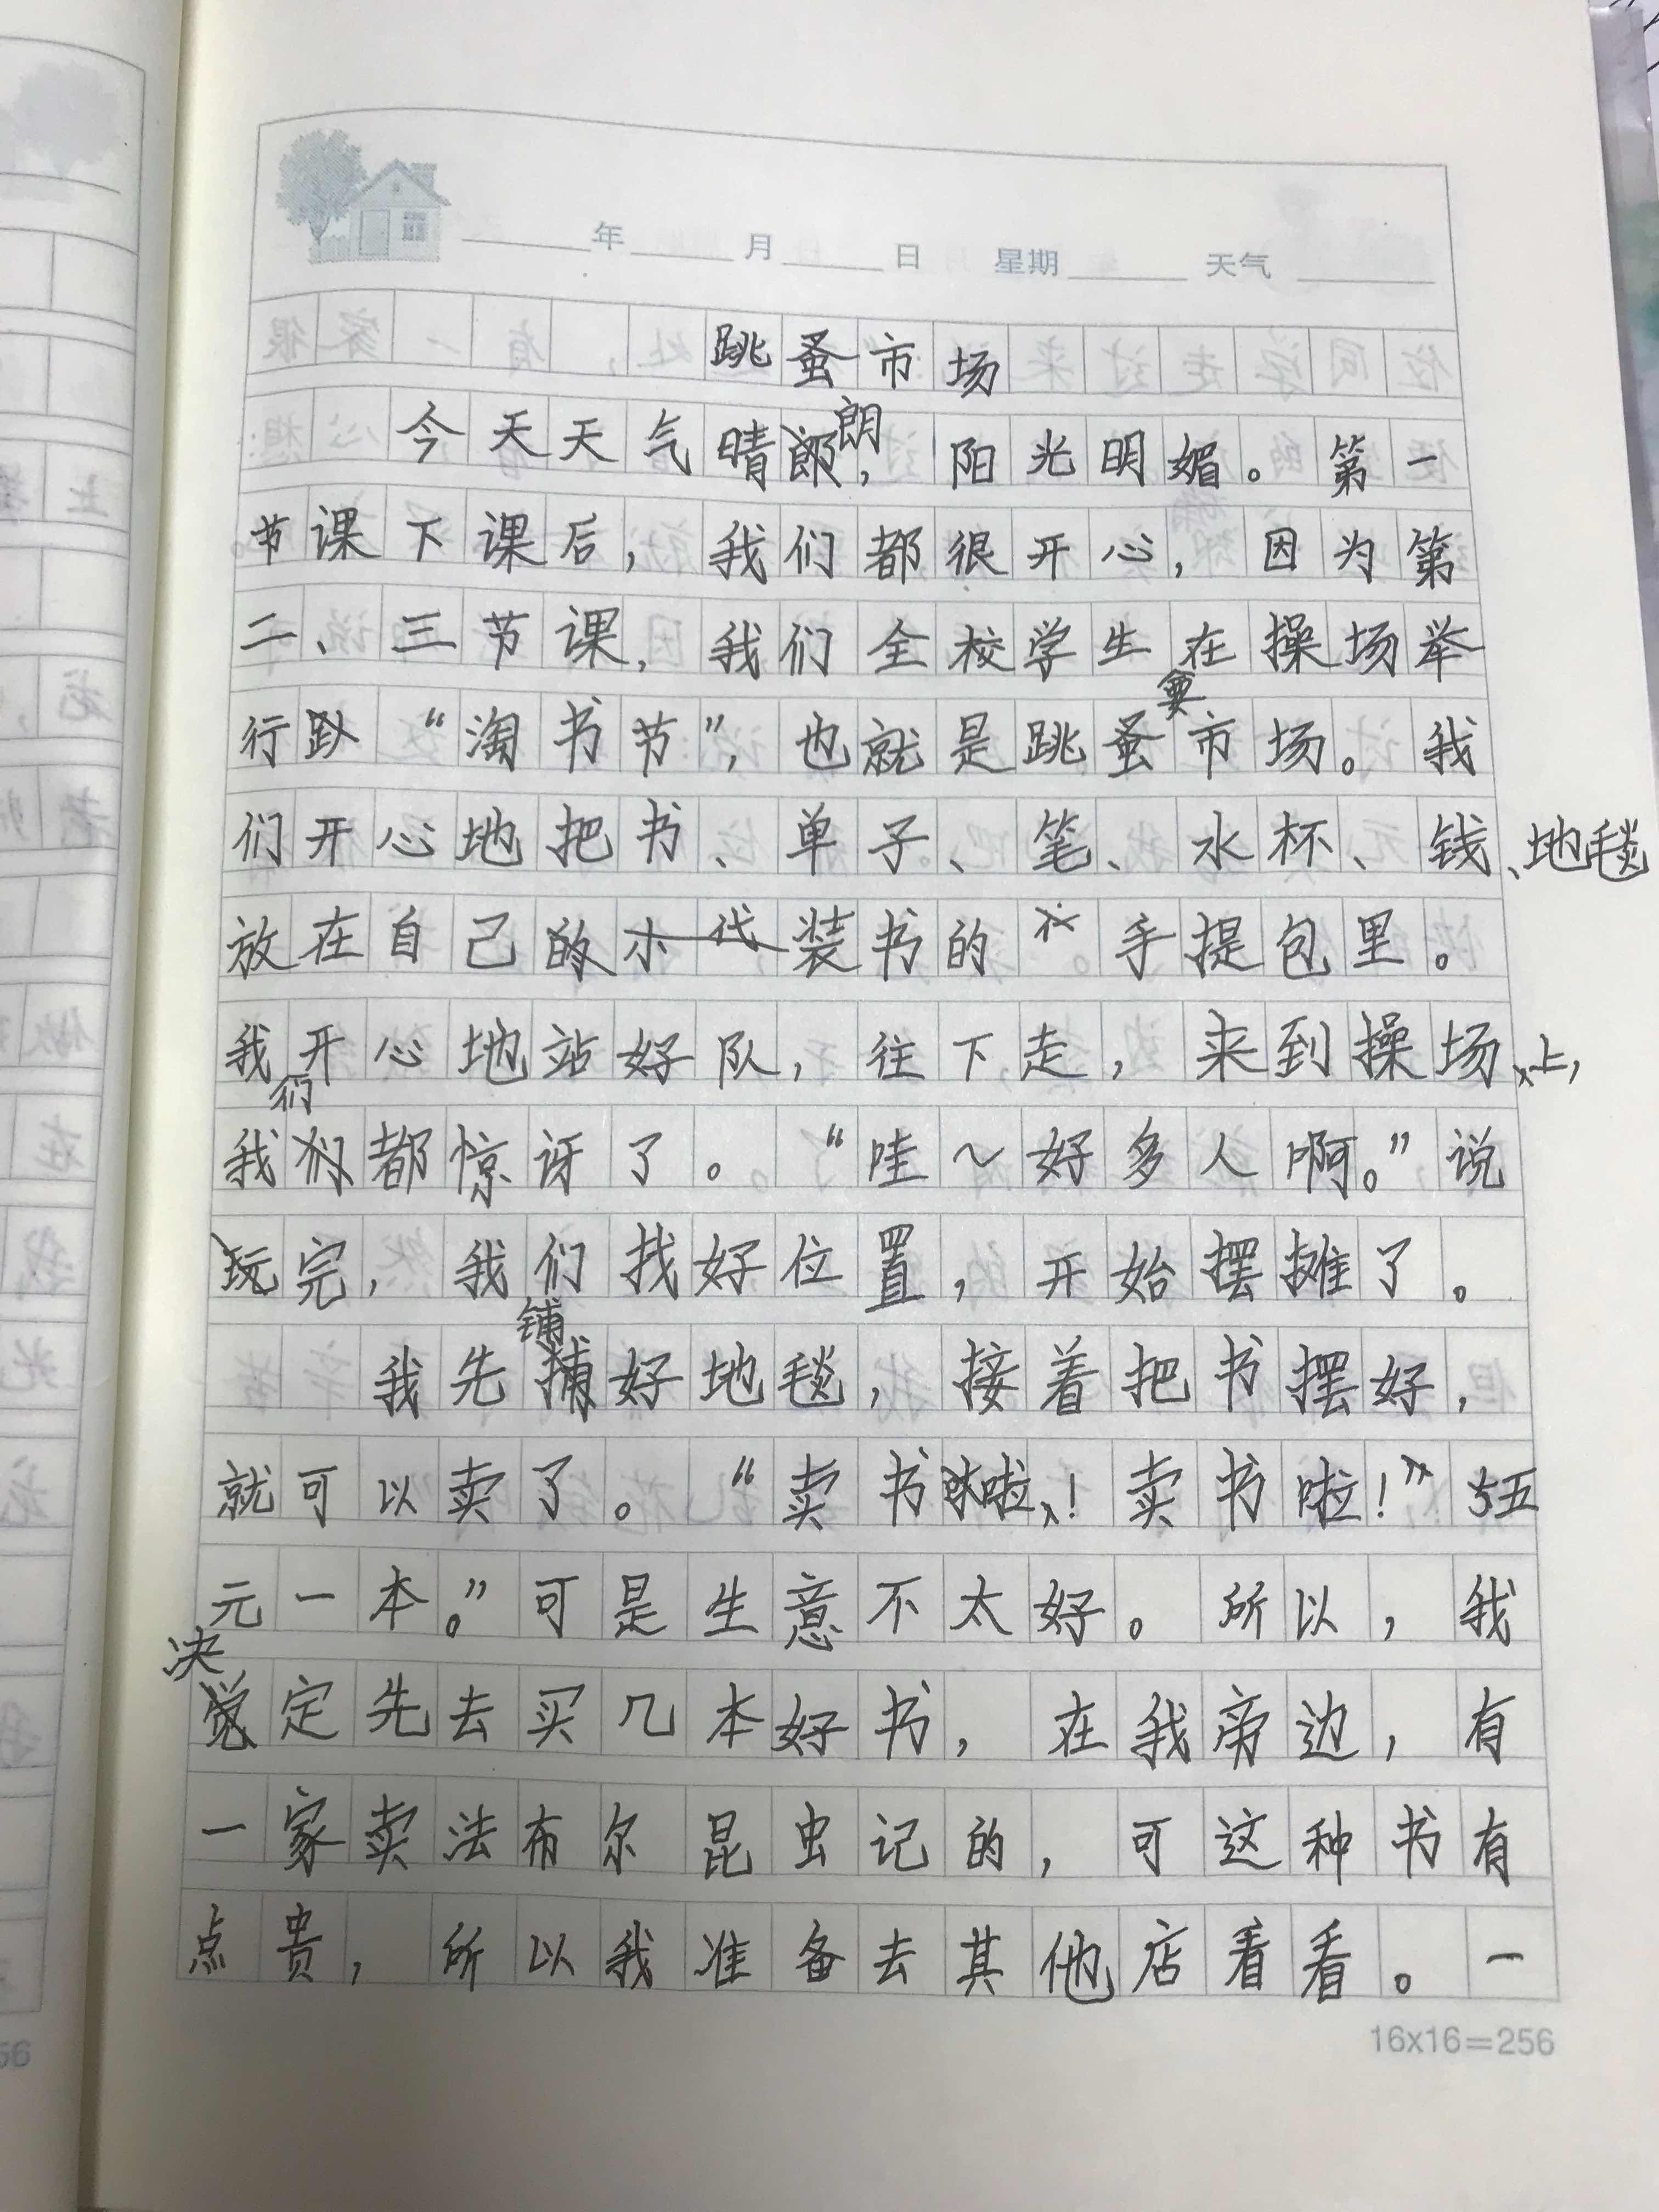 年 月 日 星期 天气
跳蚤市场
今天天气晴朗，阳光明媚。第一
节课下课后，我们都很开心，因为第
二、三节课，我们全校学生在操场举
行“淘书节”，也就是跳蚤市场。我
们开心地把书、单子、笔、水杯、钱、地毯
放在自己的装书的手提包里。
我们开心地站好队，往下走，来到操场上，
我们都惊讶了。“哇～好多人啊。”说
完，我们找好位置，开始摆摊了。
我先铺好地毯，接着把书摆好，
就可以卖了。“卖书啦！卖书啦！五
元一本。”可是生意不太好。所以，我
决定先去买几本好书，在我旁边，有
一家卖法布尔昆虫记的，可这种书有
点贵，所以我准备去其他店看看。一
16x16=256